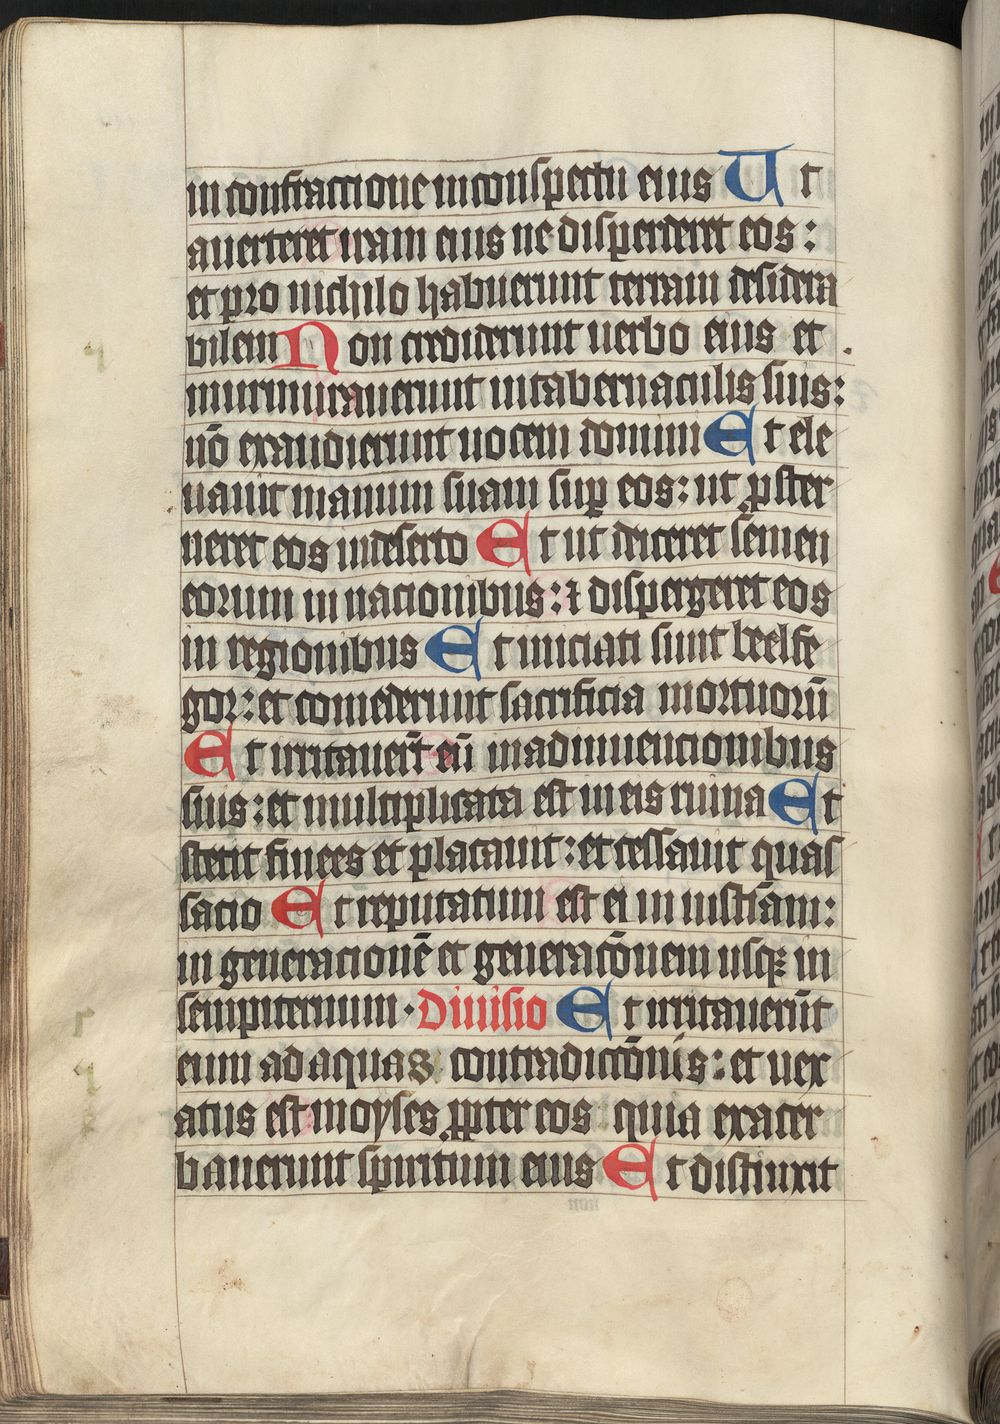 in confractione in conspectu eius Ut
auerteret iram eius ne disperderet eos:
et pro nichilo habuerunt terram desidera
bilem Non crediderunt uerbo eius et
murmurauerunt in tabernaculis suis:
nō exaudierunt uocem domini Et ele
uauit manum suam sup̱ eos: ut ꝓster
neret eos in deserto Et ut deiceret semen
eorum in nacionibus: ⁊ dispergeret eos
in regionibus Et iniciati sunt beelfe
gor: et comederunt sacrificia mortuorū
Et irritauer̄t eū in adinuencionibus
suis: et multiplicata est in eis ruina Et
stetit finees et placauit: et cessauit quas
sacio Et reputatum est ei in iusticīam:
in generacionē et generacōnem usqꝫ in
sempiternum · Diuisio Et irritauerūt
eum ad aquas contradictōnis: et uex
atus est moyses ꝓpter eos quia exacer
bauerunt spiritum eius Et distinxit